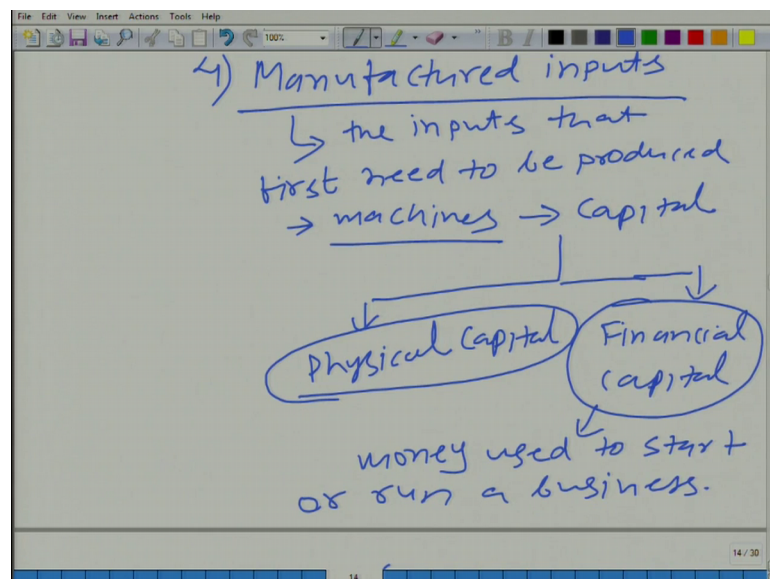 File Edit View Insert Actions Tools Help
100%
B I
4) Manufactured inputs
↳ the inputs that
first need to be produced
→ machines → Capital
Physical Capital
Financial
Capital
money used to start
or run a business.
14 / 30
14